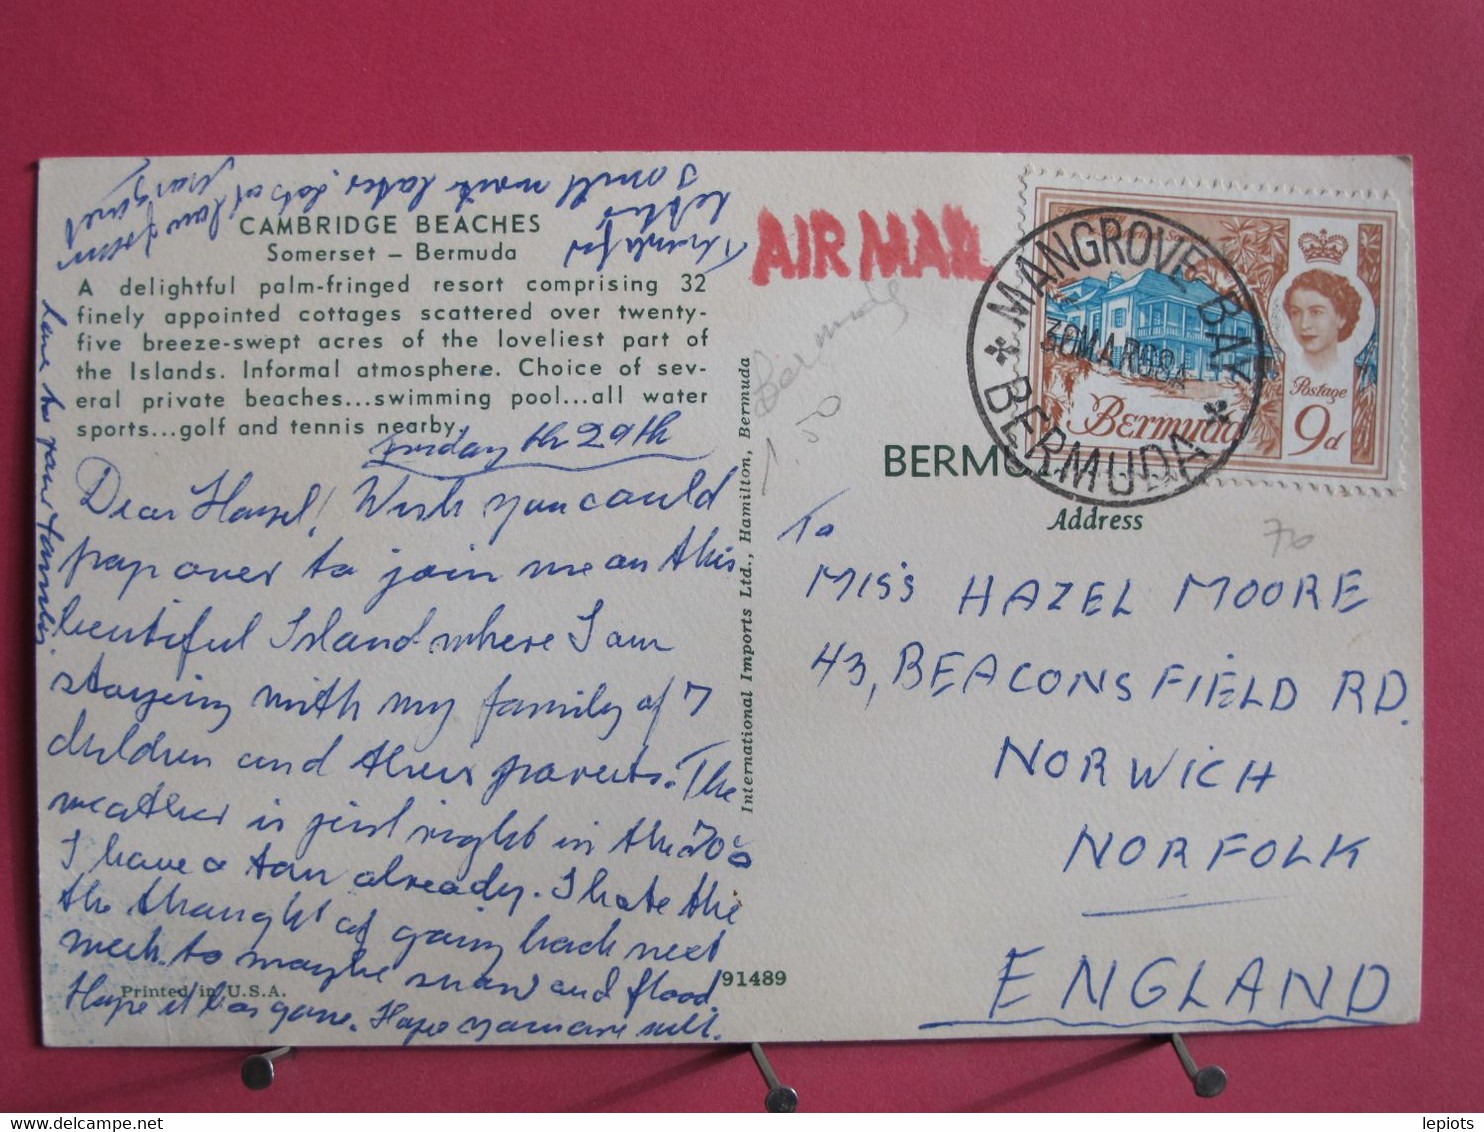 CAMBRIDGE BEACHES
Somerset – Bermuda
A delightful palm-fringed resort comprising 32
finely appointed cottages scattered over twenty-
five breeze-swept acres of the loveliest part of
the Islands. Informal atmosphere. Choice of sev-
eral private beaches...swimming pool...all water
sports...golf and tennis nearby.
Friday the 29th
Dear Hazel! Wish you could
pop over to join me on this
beautiful Island where I am
staying with my family of 7
children and their parents. The
weather is just right in the 70s
I have a tan already. I hate the
the thought of going back next
week to maybe snow and flood
Hope it has gone. Hope you are well.
Thanks for
letter
I will write later. lots of
love from
Margaret
Love to your families.
Printed in U.S.A.
91489
International Imports Ltd., Hamilton, Bermuda
AIR MAIL
Bermudes
1.50
MANGROVE BAY
30MAR68A
BERMUDA
Postage
Bermuda
9d
BERMUDA
Address
70
To
MISS HAZEL MOORE
43, BEACONSFIELD RD.
NORWICH
NORFOLK
ENGLAND
lepiots